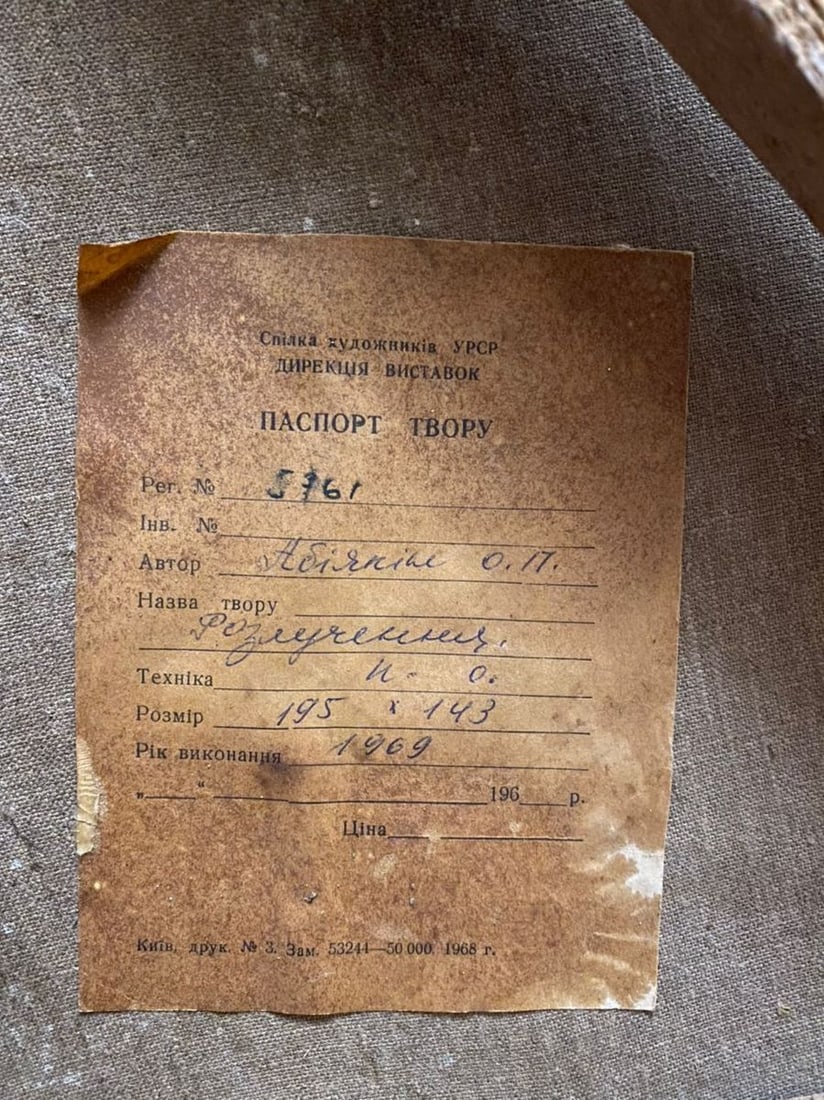 Спілка художників УРСР
ДИРЕКЦІЯ ВИСТАВОК
ПАСПОРТ ТВОРУ
Рег. № 5761
Інв. №
Автор Абіякін О. П.
Назва твору
Розлучення.
Техніка п. о.
Розмір 195 х 143
Рік виконання 1969
„ “ 196 р.
Ціна
Київ, друк. № 3. Зам. 53244—50 000. 1968 г.